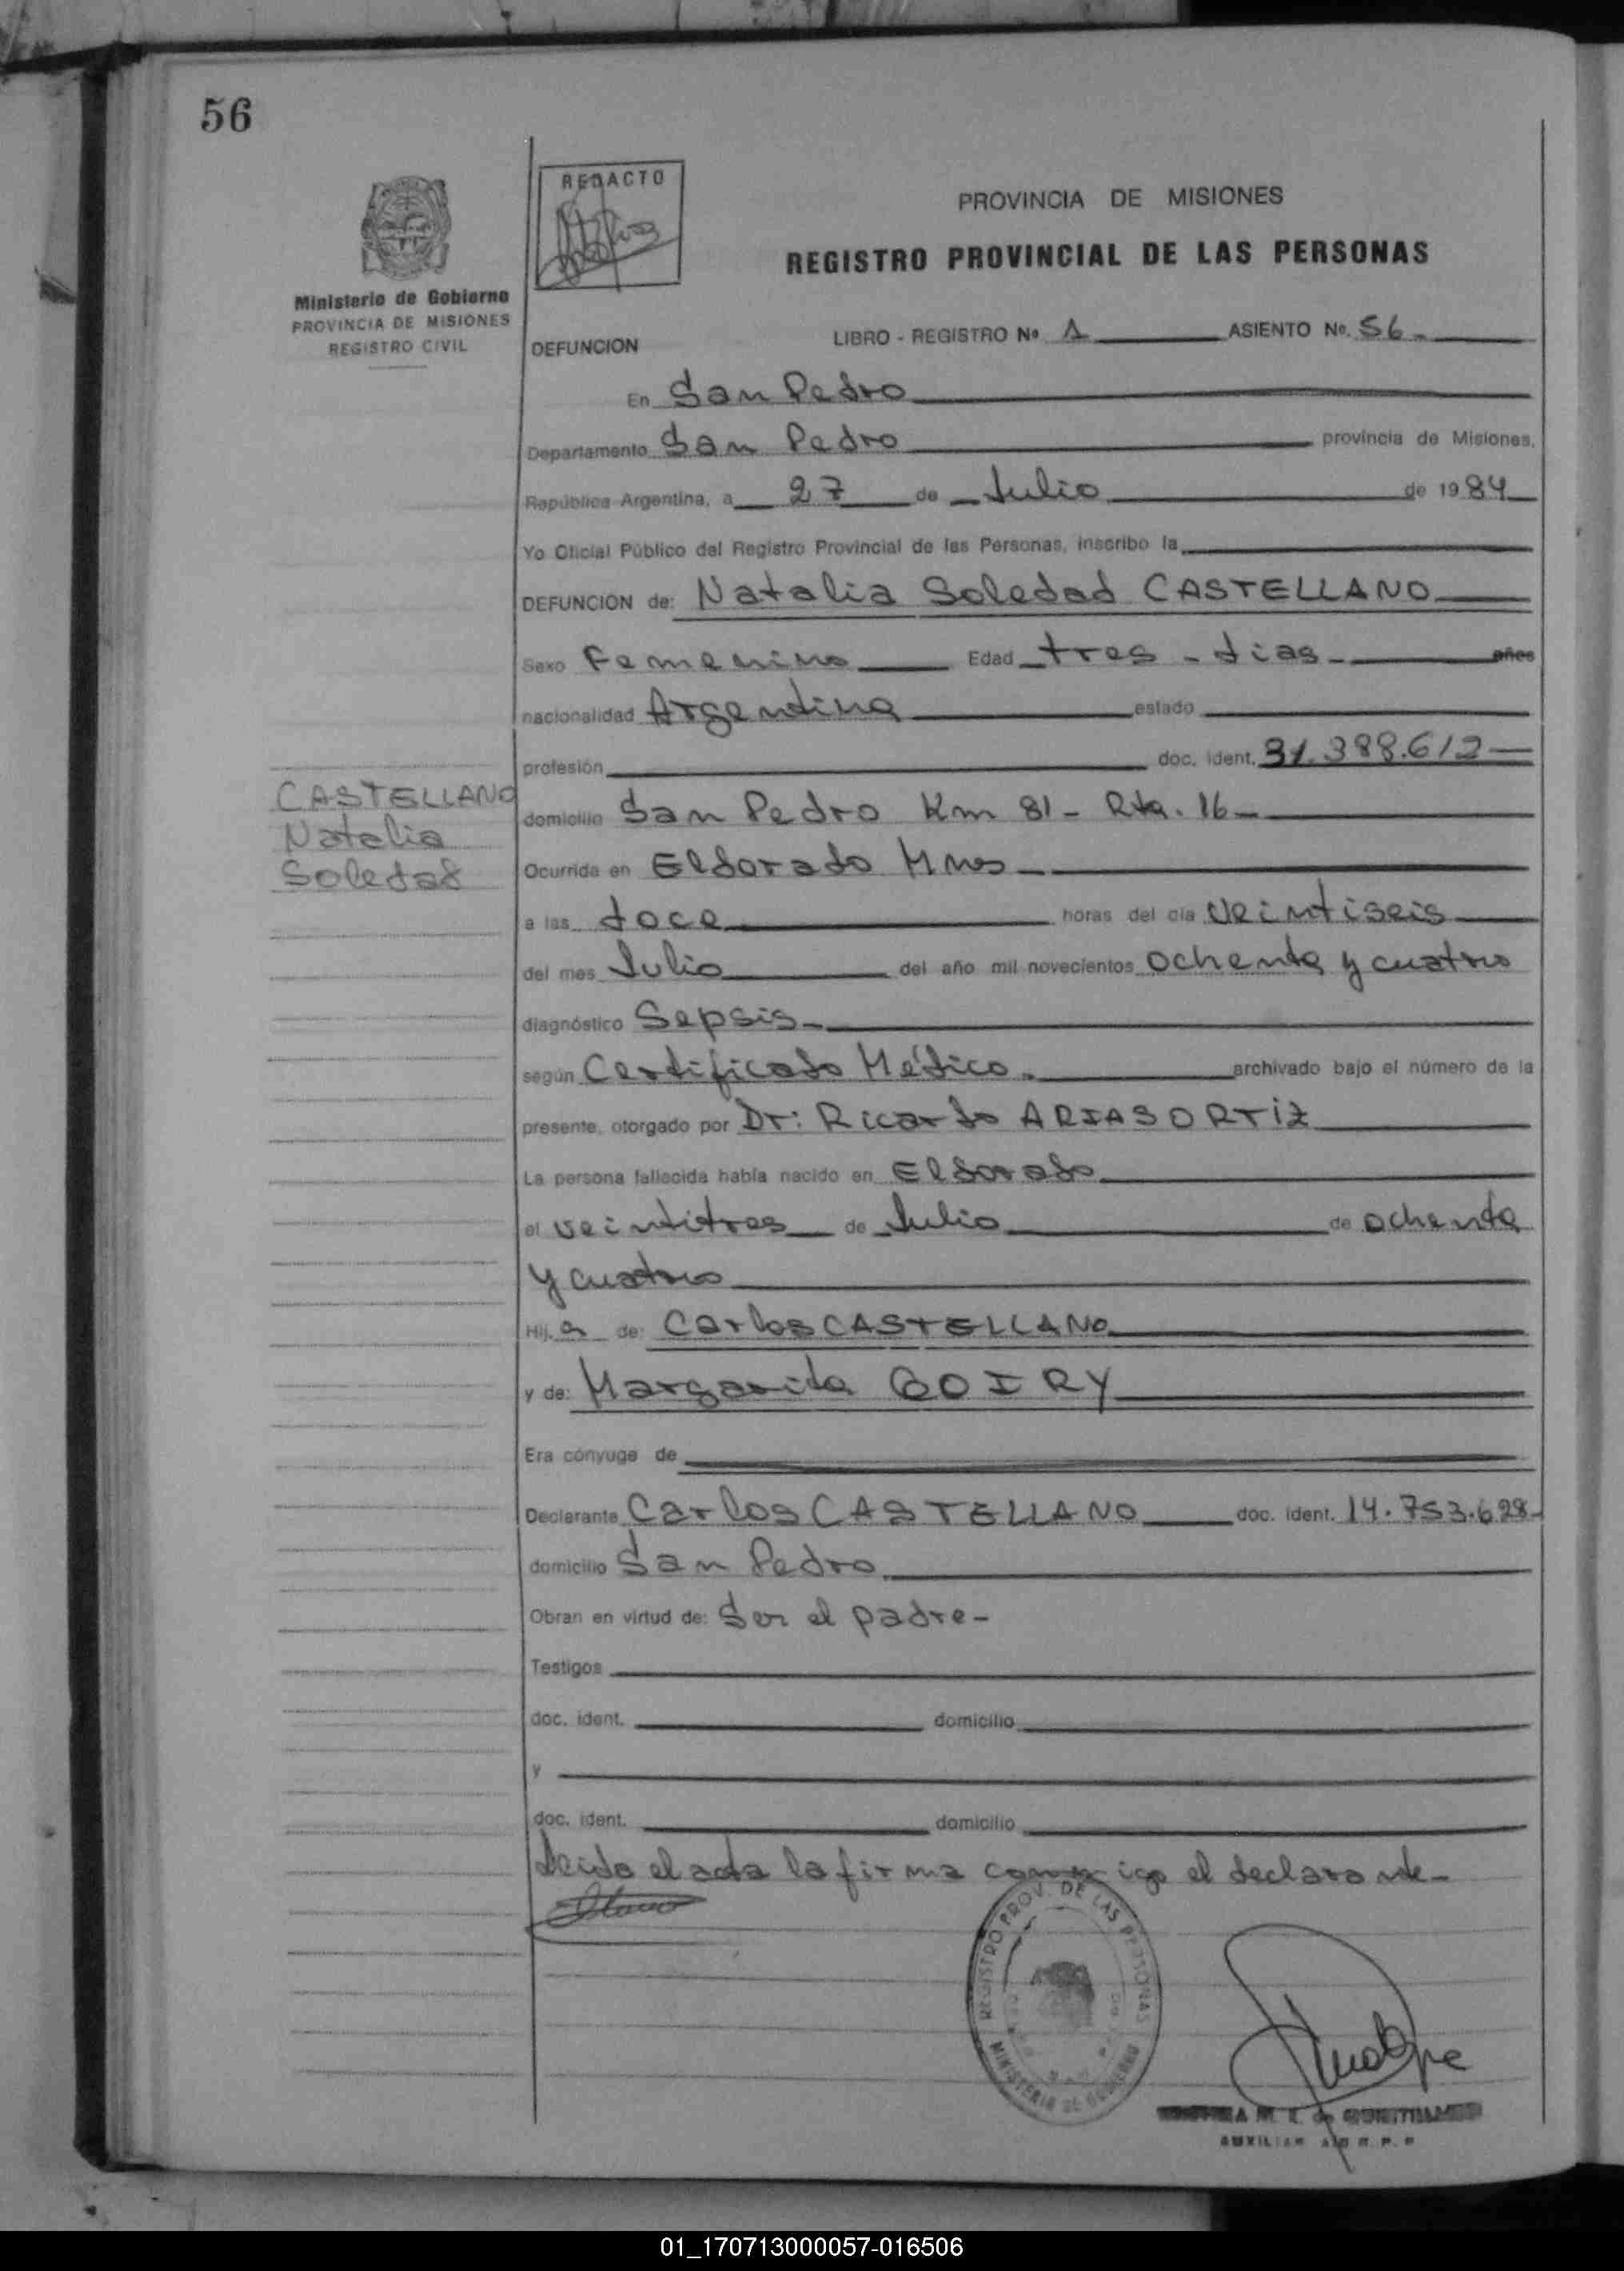 56
REDACTO
Ministerio de Gobierno
PROVINCIA DE MISIONES
REGISTRO CIVIL
PROVINCIA DE MISIONES
REGISTRO PROVINCIAL DE LAS PERSONAS
DEFUNCION LIBRO - REGISTRO Nº 1 ASIENTO Nº. 56
En San Pedro
Departamento San Pedro provincia de Misiones,
República Argentina, a 27 de Julio de 1984
Yo Oficial Público del Registro Provincial de las Personas, inscribo la
DEFUNCION de: Natalia Soledad CASTELLANO
Sexo Femenino Edad tres - dias - años
nacionalidad Argentina estado
profesión doc. ident. 31.388.612
CASTELLANO
Natalia
Soledad
domicilio San Pedro Km 81 - Rta. 16 -
Ocurrida en Eldorado Mnes
a las doce horas del día veintiseis
del mes Julio del año mil novecientos ochenta y cuatro
diagnóstico Sepsis -
según Certificado Médico. archivado bajo el número de la
presente, otorgado por Dr: Ricardo ARIAS ORTIZ
La persona fallecida había nacido en Eldorado
el veintitres de Julio de ochenta
y cuatro
Hij a de: Carlos CASTELLANO
y de: Margarita GOIRY
Era cónyuge de
Declarante Carlos CASTELLANO doc. ident. 14.753.628-
domicilio San Pedro
Obran en virtud de: Ser el padre -
Testigos
doc. ident. domicilio
y
doc. ident. domicilio
Leida el acta la firma conmigo el declarante -
REGISTRO PROV. DE LAS PERSONAS
MINISTERIO DE GOBIERNO
AUXILIAR
01_170713000057-016506